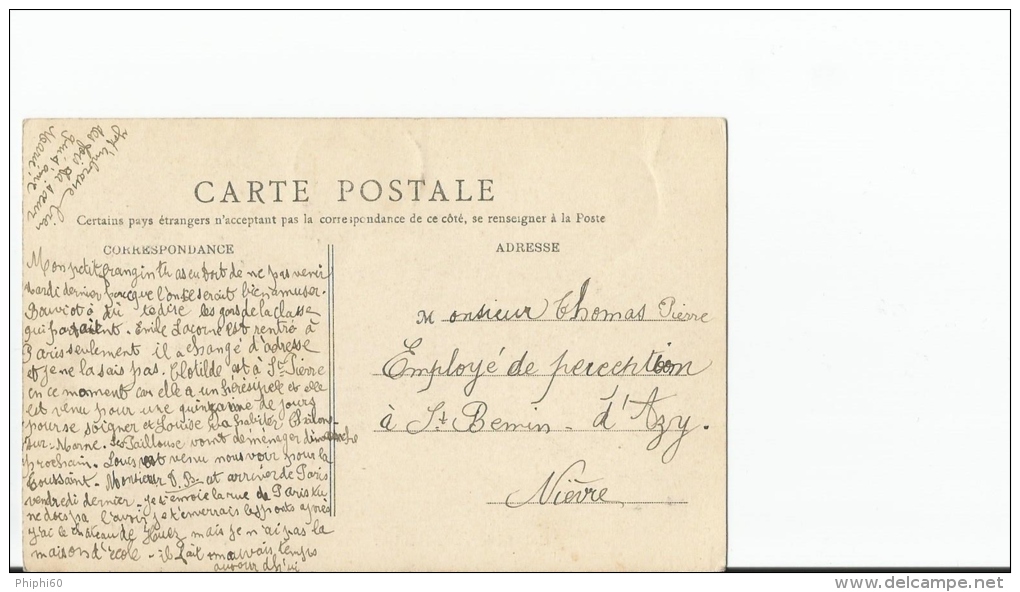 Je t'embrasse bien
des fois ta sœur
qui t'aime
Marie
CARTE POSTALE
Certains pays étrangers n'acceptant pas la correspondance de ce côté, se renseigner à la Poste
CORRESPONDANCE
ADRESSE
Mon petit frangin tu as eu tort de ne pas venir
mardi dernier parce que l'on se serait bien amuser.
Bouviot a dû te dire les gars de la classe
qui partait. Emile Lacorne est rentré à
Paris seulement il a changé d'adresse
et je ne la sais pas. Clotilde est à St Pierre
en ce moment car elle a un hérésipèle et elle
est venu pour une quinzaine de jours
pour se soigner et Louise va habiter Chalons
sur-Marne. Les Taillouse vont déménager dimanche
prochain. Louis est venu nous voir pour la
Toussaint. Monsieur D.B. et arriver de Paris
vendredi dernier. je t'envoie la vue de Paris tu
ne dois pas l'avoir, je t'enverrais les ports après
j'ai le château de mais je n'ai pas la
maison d'école - il fait mauvais temps
aujour d'hui
Monsieur Thomas Pierre
Employé de perception
à St Benin - d'Azy.
Nièvre
Phiphi60
www.delcampe.net